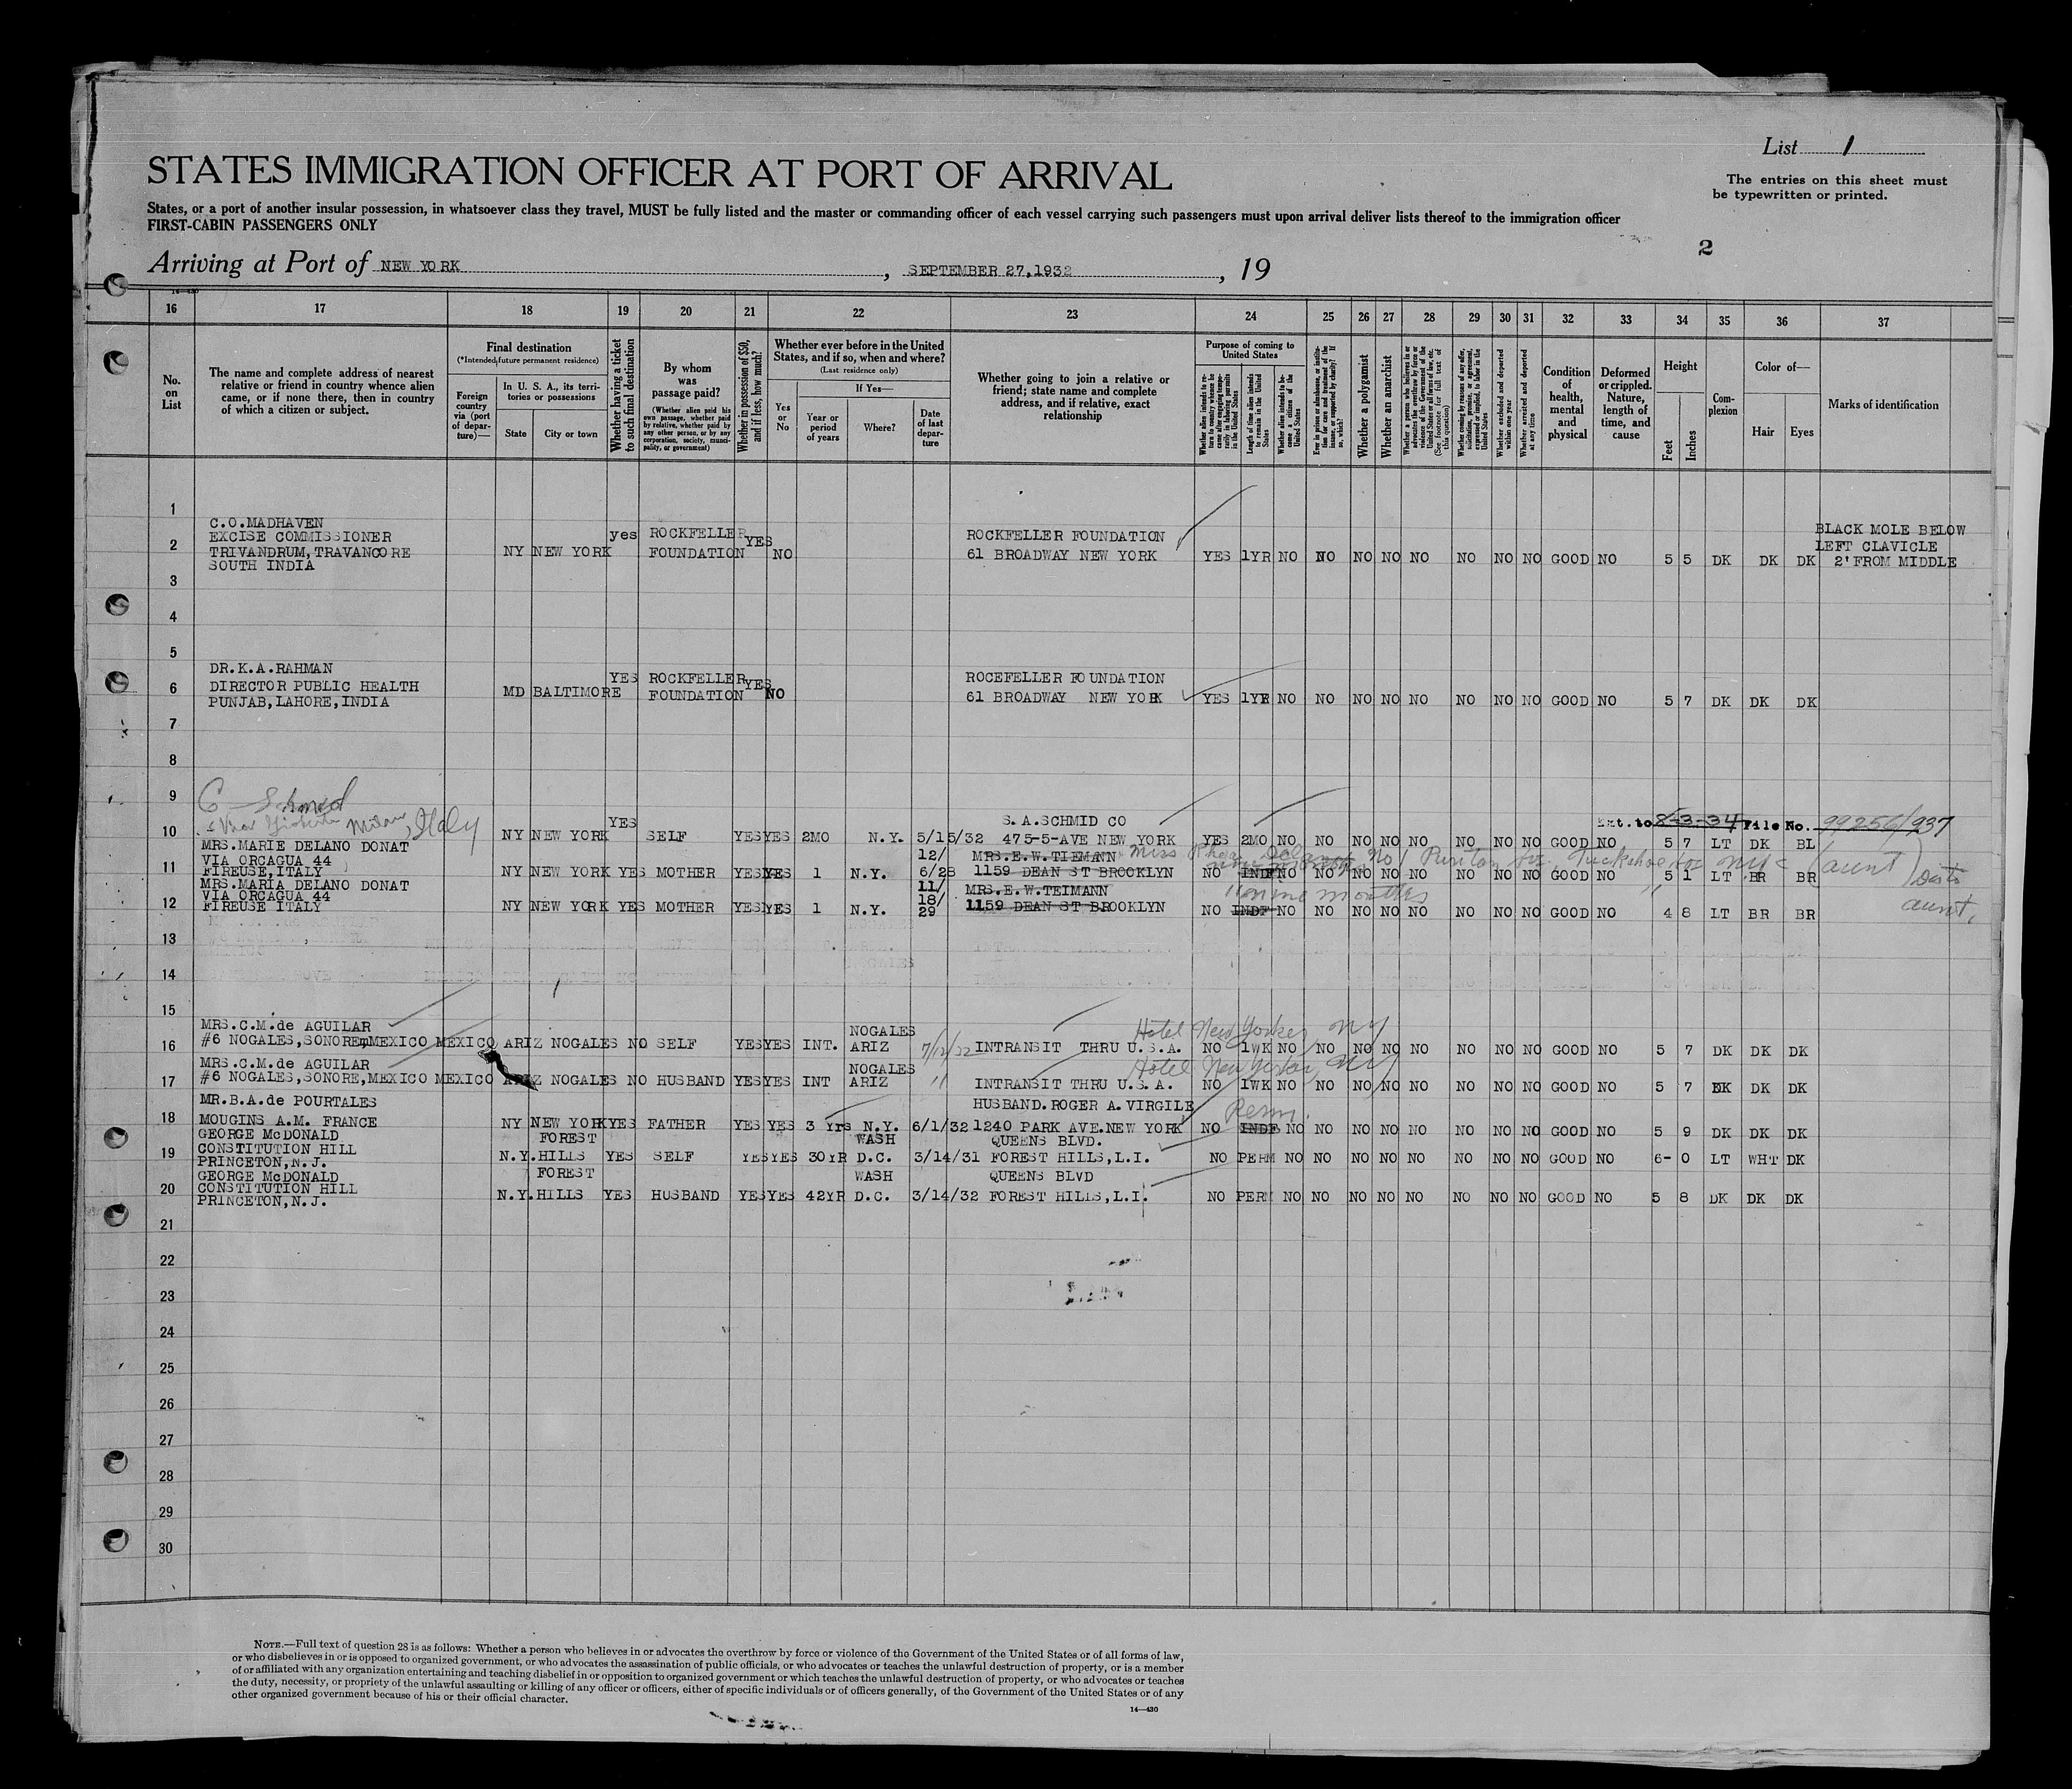 List 1
The entries on this sheet must
be typewritten or printed.
STATES IMMIGRATION OFFICER AT PORT OF ARRIVAL
States, or a port of another insular possession, in whatsoever class they travel, MUST be fully listed and the master or commanding officer of each vessel carrying such passengers must upon arrival deliver lists thereof to the immigration officer
FIRST-CABIN PASSENGERS ONLY
2
Arriving at Port of NEW YORK, SEPTEMBER 27, 1932, 19
16 17 18 19 20 21 22 23 24 25 26 27 28 29 30 31 32 33 34 35 36 37
No. on List
The name and complete address of nearest relative or friend in country whence alien came, or if none there, then in country of which a citizen or subject.
Final destination
(*Intended future permanent residence)
Foreign country via (port of departure)—
In U. S. A., its territories or possessions
State
City or town
Whether having a ticket to such final destination
By whom was passage paid?
(Whether alien paid his own passage, whether paid by relative, whether paid by any other person, or by any corporation, society, municipality, or government)
Whether in possession of $50, and if less, how much?
Whether ever before in the United States, and if so, when and where?
(Last residence only)
Yes or No
If Yes—
Year or period of years
Where?
Date of last departure
Whether going to join a relative or friend; state name and complete address, and if relative, exact relationship
Purpose of coming to United States
Length of time alien intends to remain in the United States
Whether alien intends to become a citizen of the United States
Whether a polygamist
Whether an anarchist
Whether arrested and deported at any time
Condition of health, mental and physical
Deformed or crippled. Nature, length of time, and cause
Height
Feet
Inches
Complexion
Color of—
Hair
Eyes
Marks of identification
1
C.O.MADHAVEN
EXCISE COMMISSIONER yes ROCKFELLER YES ROCKFELLER FOUNDATION BLACK MOLE BELOW
2 TRIVANDRUM, TRAVANCORE NY NEW YORK FOUNDATION NO 61 BROADWAY NEW YORK YES 1YR NO NO NO NO NO NO NO NO GOOD NO 5 5 DK DK DK LEFT CLAVICLE
SOUTH INDIA 2' FROM MIDDLE
3
4
5
DR.K.A.RAHMAN YES ROCKFELLER YES ROCEFELLER FOUNDATION
6 DIRECTOR PUBLIC HEALTH MD BALTIMORE FOUNDATION NO 61 BROADWAY NEW YORK YES 1YR NO NO NO NO NO NO NO NO GOOD NO 5 7 DK DK DK
PUNJAB, LAHORE, INDIA
7
8
9 C Schmid
Milan, Italy YES S.A.SCHMID CO Ext. to 8-3-34 File No. 99256/937
10 NY NEW YORK SELF YES YES 2MO N.Y. 5/15/32 475-5-AVE NEW YORK YES 2MO NO NO NO NO NO NO NO NO GOOD NO 5 7 LT DK BL
MRS.MARIE DELANO DONAT
VIA ORCAGUA 44 12/ MRS.E.W.TIEMANN Miss (aunt)
11 FIREUSE, ITALY NY NEW YORK YES MOTHER YES YES 1 N.Y. 6/28 1159 DEAN ST BROOKLYN NO INDF NO NO NO NO NO NO NO NO GOOD NO 5 1 LT BR BR
MRS.MARIA DELANO DONAT 11/ MRS.E.W.TEIMANN months
VIA ORCAGUA 44 18/ aunt
12 FIREUSE ITALY NY NEW YORK YES MOTHER YES YES 1 N.Y. 29 1159 DEAN ST BROOKLYN NO INDF NO NO NO NO NO NO NO NO GOOD NO 4 8 LT BR BR
13
14
15
MRS.C.M.de AGUILAR NOGALES Hotel New Yorker, NY
16 #6 NOGALES, SONORE, MEXICO MEXICO ARIZ NOGALES NO SELF YES YES INT. ARIZ 7/12/32 INTRANSIT THRU U.S.A. NO 1WK NO NO NO NO NO NO NO NO GOOD NO 5 7 DK DK DK
MRS.C.M.de AGUILAR NOGALES Hotel New Yorker, NY
17 #6 NOGALES, SONORE, MEXICO MEXICO ARIZ NOGALES NO HUSBAND YES YES INT ARIZ " INTRANSIT THRU U.S.A. NO 1WK NO NO NO NO NO NO NO NO GOOD NO 5 7 DK DK DK
MR.B.A.de POURTALES HUSBAND.ROGER A.VIRGILE Perm.
18 MOUGINS A.M. FRANCE NY NEW YORK YES FATHER YES YES 3 Yrs N.Y. 6/1/32 1240 PARK AVE.NEW YORK NO INDF NO NO NO NO NO NO NO NO GOOD NO 5 9 DK DK DK
GEORGE McDONALD FOREST WASH QUEENS BLVD.
19 CONSTITUTION HILL N.Y. HILLS YES SELF YES YES 30YR D.C. 3/14/31 FOREST HILLS, L.I. NO PERM NO NO NO NO NO NO NO NO GOOD NO 6- 0 LT WHT DK
PRINCETON, N.J.
GEORGE McDONALD FOREST WASH QUEENS BLVD
20 CONSTITUTION HILL N.Y. HILLS YES HUSBAND YES YES 42YR D.C. 3/14/32 FOREST HILLS, L.I. NO PERM NO NO NO NO NO NO NO NO GOOD NO 5 8 DK DK DK
PRINCETON, N.J.
21
22
23
24
25
26
27
28
29
30
NOTE.—Full text of question 28 is as follows: Whether a person who believes in or advocates the overthrow by force or violence of the Government of the United States or of all forms of law,
or who disbelieves in or is opposed to organized government, or who advocates the assassination of public officials, or who advocates or teaches the unlawful destruction of property, or is a member
of or affiliated with any organization entertaining and teaching disbelief in or opposition to organized government or which teaches the unlawful destruction of property, or who advocates or teaches
the duty, necessity, or propriety of the unlawful assaulting or killing of any officer or officers, either of specific individuals or of officers generally, of the Government of the United States or of any
other organized government because of his or their official character.
14—430